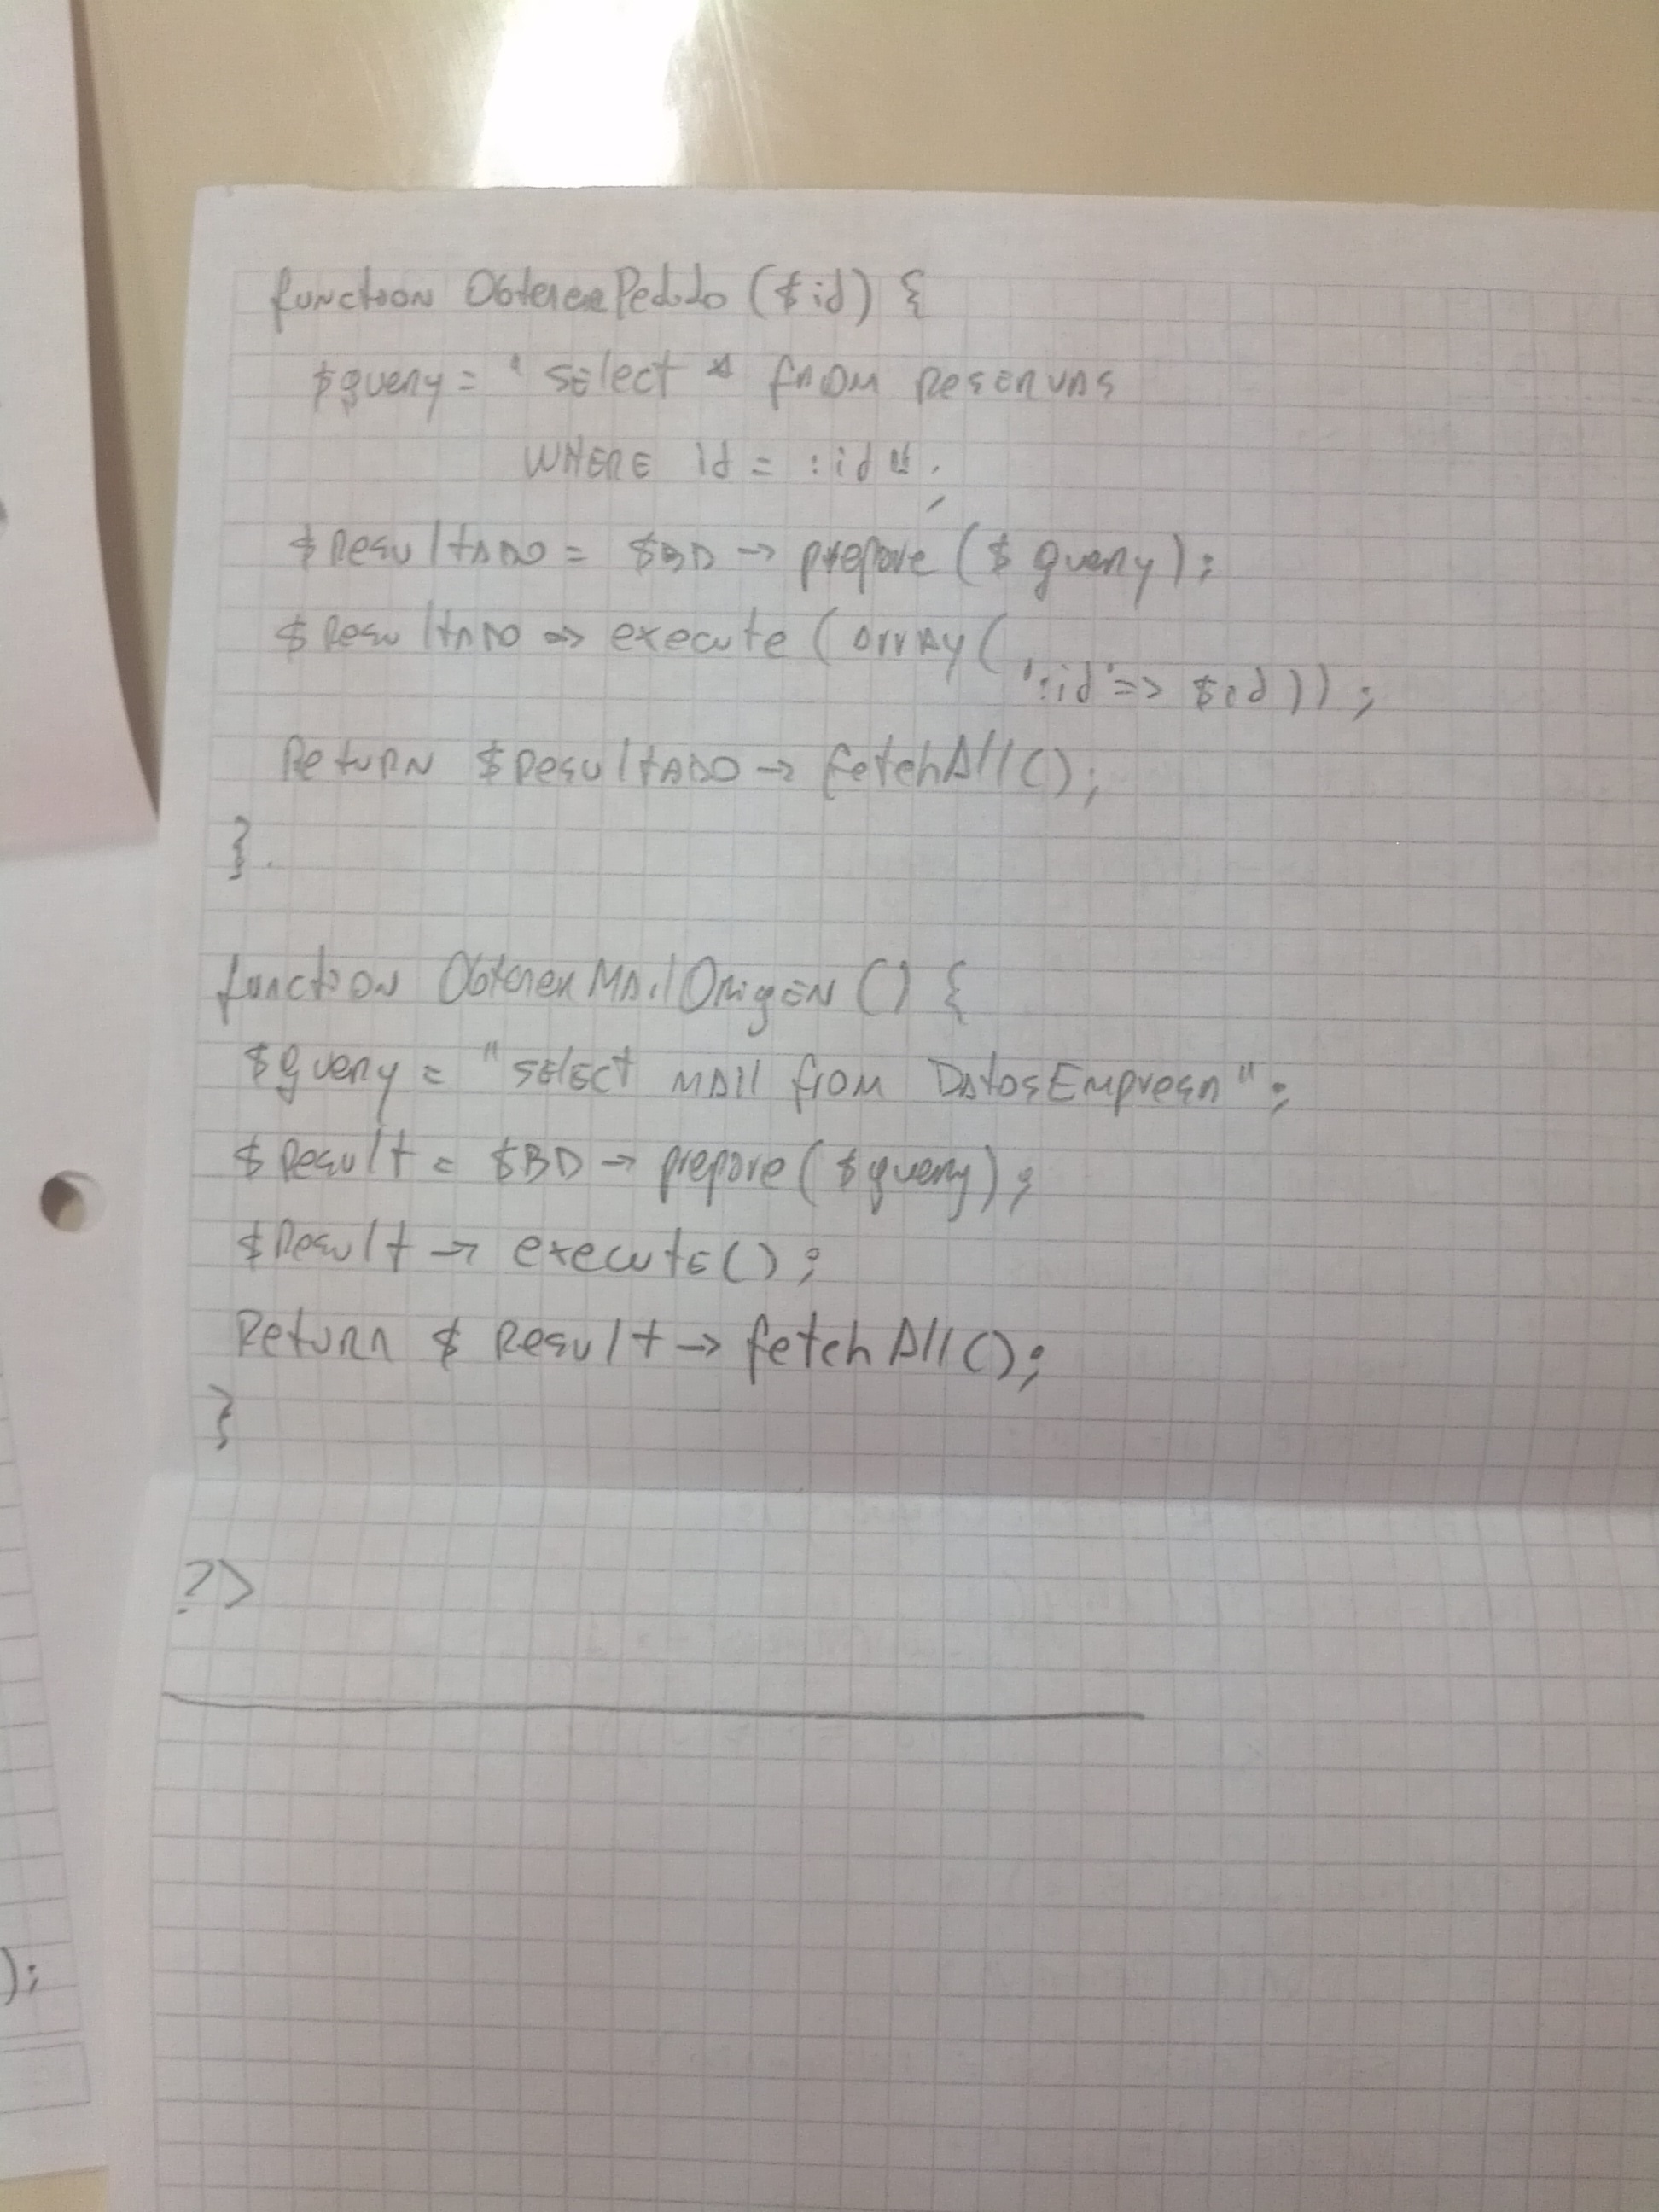 function ObtenerPedido ($id) {
$query = " select * from reservas
WHERE id = :id";
$resultado = $BD -> prepare ($ query);
$resultado => execute (array(
':id' => $id));
Return $resultado -> fetchAll();
}
function ObtenerMailOrigen () {
$query = "select mail from DatosEmpresa";
$result = $BD -> prepare ($query);
$result -> execute();
Return $ result -> fetchAll();
}
?>
);